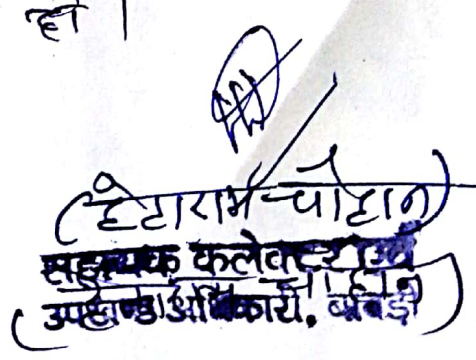 हो ।
(हेटाराम चौहान)
सहायक कलेक्टर एवं
उपखण्ड अधिकारी, बावड़ी